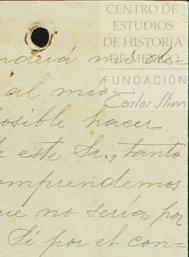 CENTRO DE
ESTUDIOS
DE HISTORIA
DE MEXICO
FUNDACIÓN
Carlos Slim
al mio
posible hacer
este Sr., tanto
comprendemos
que no seria por
Si por el con-